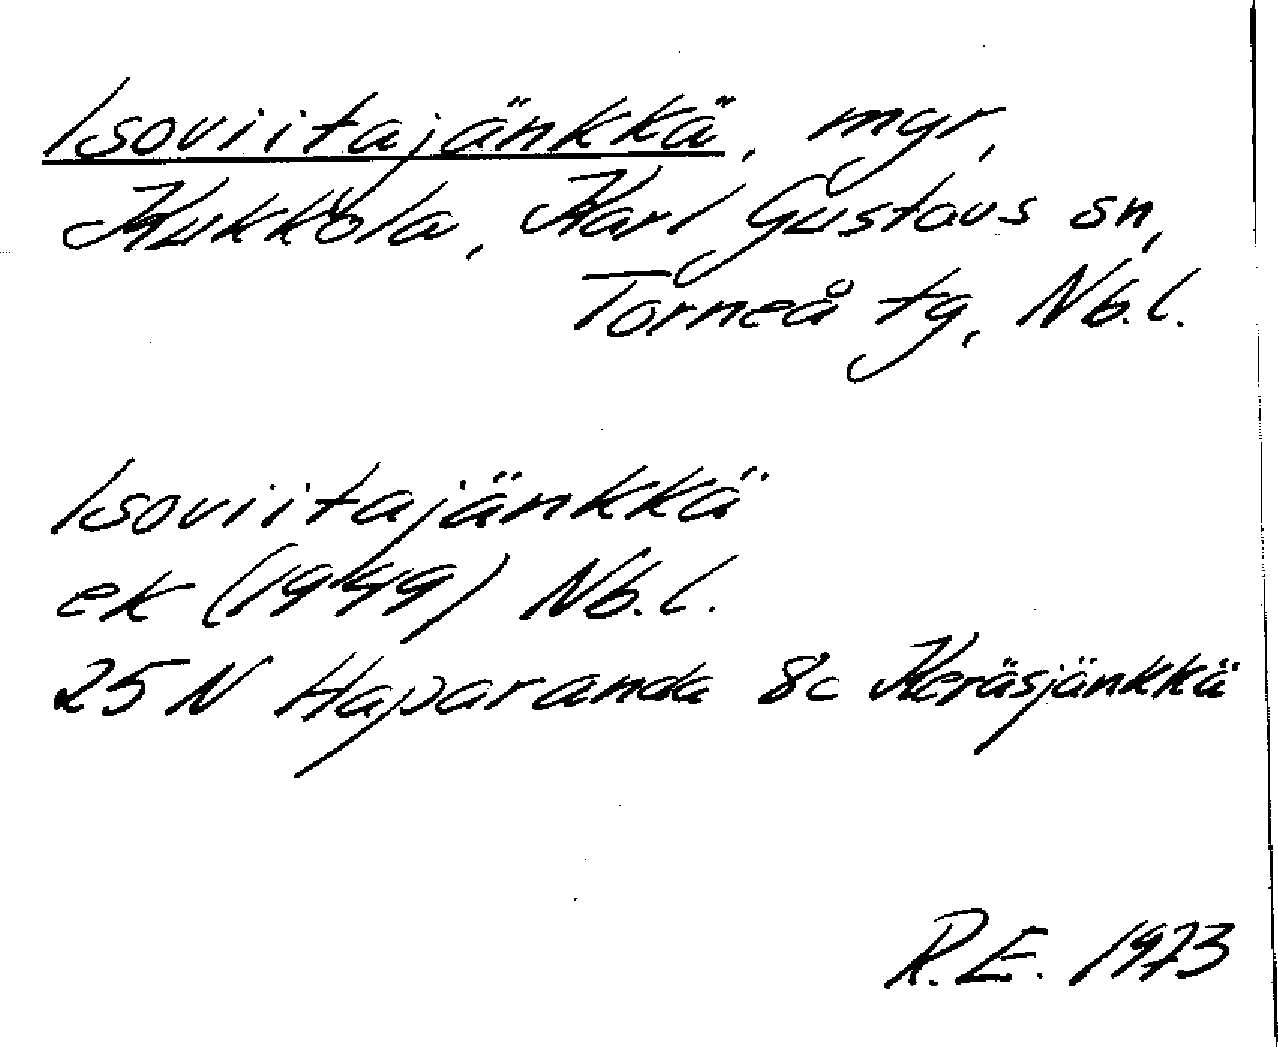 Isoviitajänkkä, mgr,
Kukkola, Karl Gustavs sn,
Torneå tg, Nb.l.
Isoviitajänkkä
ek (1949) Nb.l.
25N Haparanda 8c Keräsjänkkä
R.E. 1973